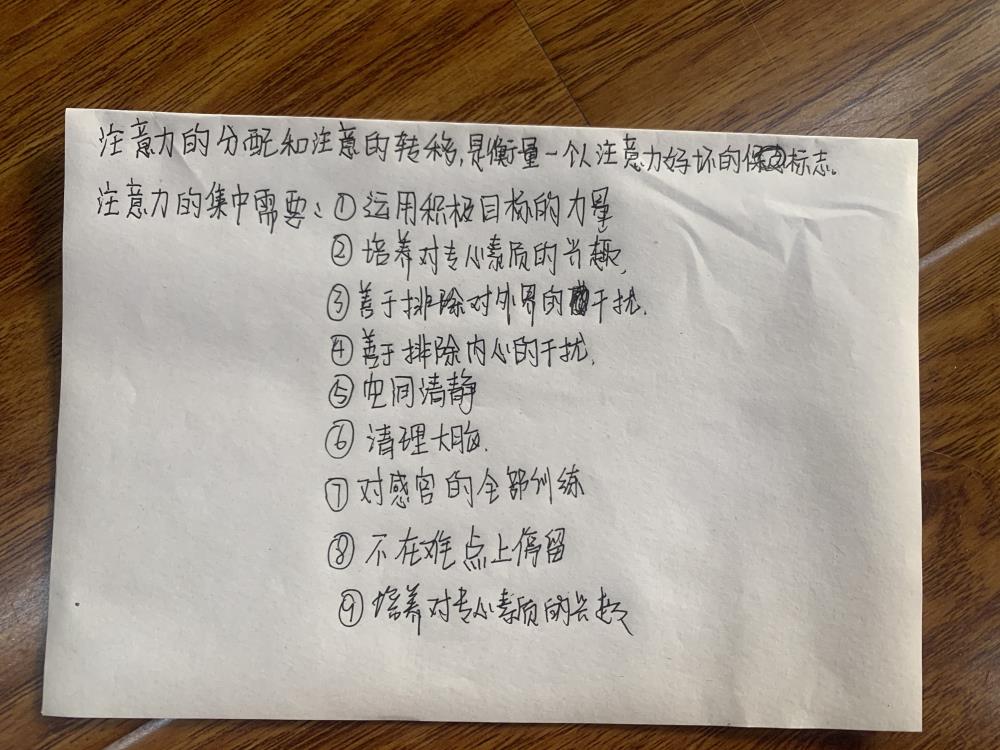 注意力的分配和注意的转移,是衡量一个人注意力好坏的标志。
注意力的集中需要:①运用积极目标的力量
②培养对专心素质的兴趣,
③善于排除对外界的干扰.
④善于排除内心的干扰.
⑤空间清静
⑥清理大脑.
⑦对感官的全部训练
⑧不在难点上停留
⑨培养对专心素质的兴趣